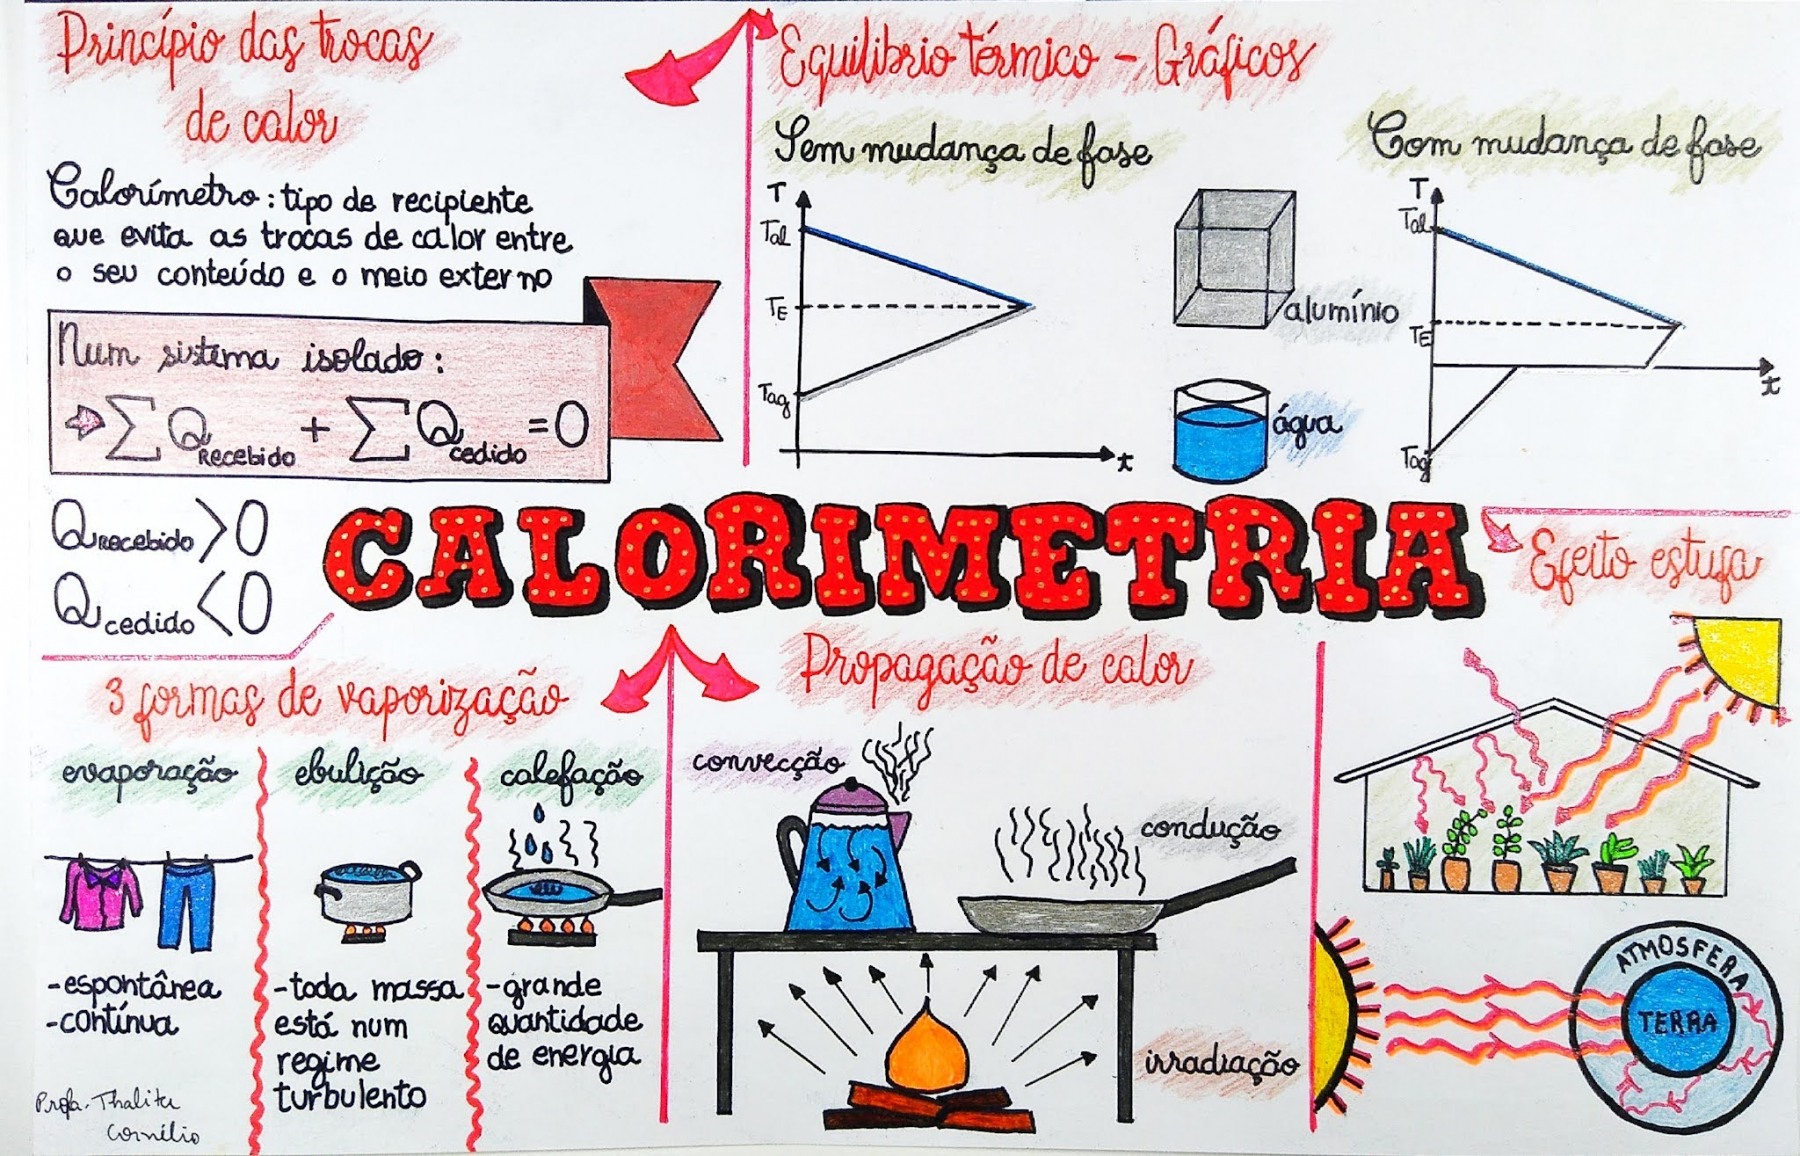 Princípio das trocas
de calor
Calorímetro: tipo de recipiente
que evita as trocas de calor entre
o seu conteúdo e o meio externo
Num sistema isolado:
⇒ ∑Q Recebido + ∑Q cedido = 0
Q Recebido > 0
Q cedido < 0
Equilibrio térmico - Gráficos
Sem mudança de fase
T
Tal
TE
Tag
t
alumínio
água
Com mudança de fase
T
Tal
TE
Tag
t
CALORIMETRIA
3 formas de vaporização
evaporação
-espontânea
-contínua
ebulição
-toda massa
está num
regime
turbulento
calefação
-grande
quantidade
de energia
Propagação de calor
convecção
condução
irradiação
Efeito estufa
ATMOSFERA
TERRA
Profa. Thalita
Cornélio